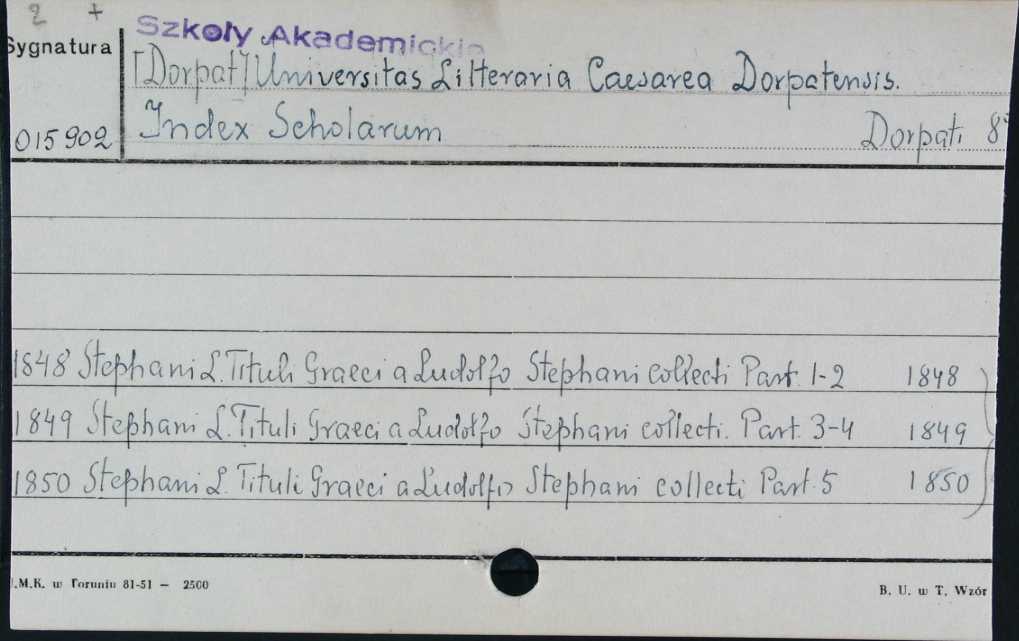 2 +
Szkoły Akademickie
Sygnatura
[Dorpat] Universitas Litteraria Caesarea Dorpatensis.
Index Scholarum Dorpati 8°
015902
1848 Stephani L. Tituli Graeci a Ludolfo Stephani collecti Part. 1-2 1848
1849 Stephani L. Tituli Graeci a Ludolfo Stephani collecti. Part. 3-4 1849
1850 Stephani L. Tituli Graeci a Ludolfo Stephani collecti Part. 5 1850
.M.K. w Toruniu 81-51 — 2500
B. U. w T. Wzór